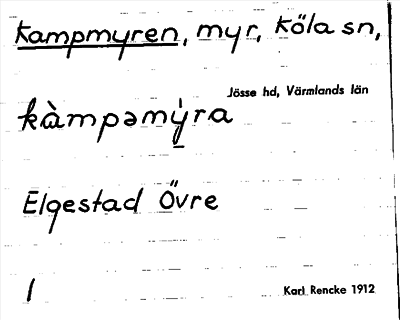 Kampmyren, myr, Köla sn,
Jösse hd, Värmlands län
kàmpəmỳ̠ra
Elgestad Övre
1
Karl Rencke 1912